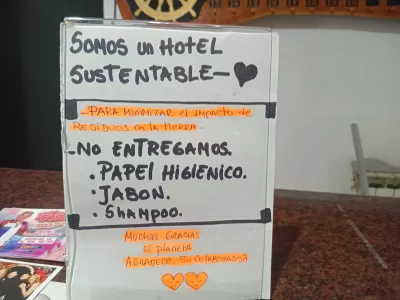 SOMOS UN HOTEL
SUSTENTABLE—
-PARA MINIMIZAR el IMPACTO de
RESIDUOS EN LA TIERRA
-NO ENTREGAMOS.
. PAPEL HIGIENICO.
. JABON.
. SHAMPOO.
MUCHAS GRACIAS
El planeta
AGRADECE SU COLABORACION